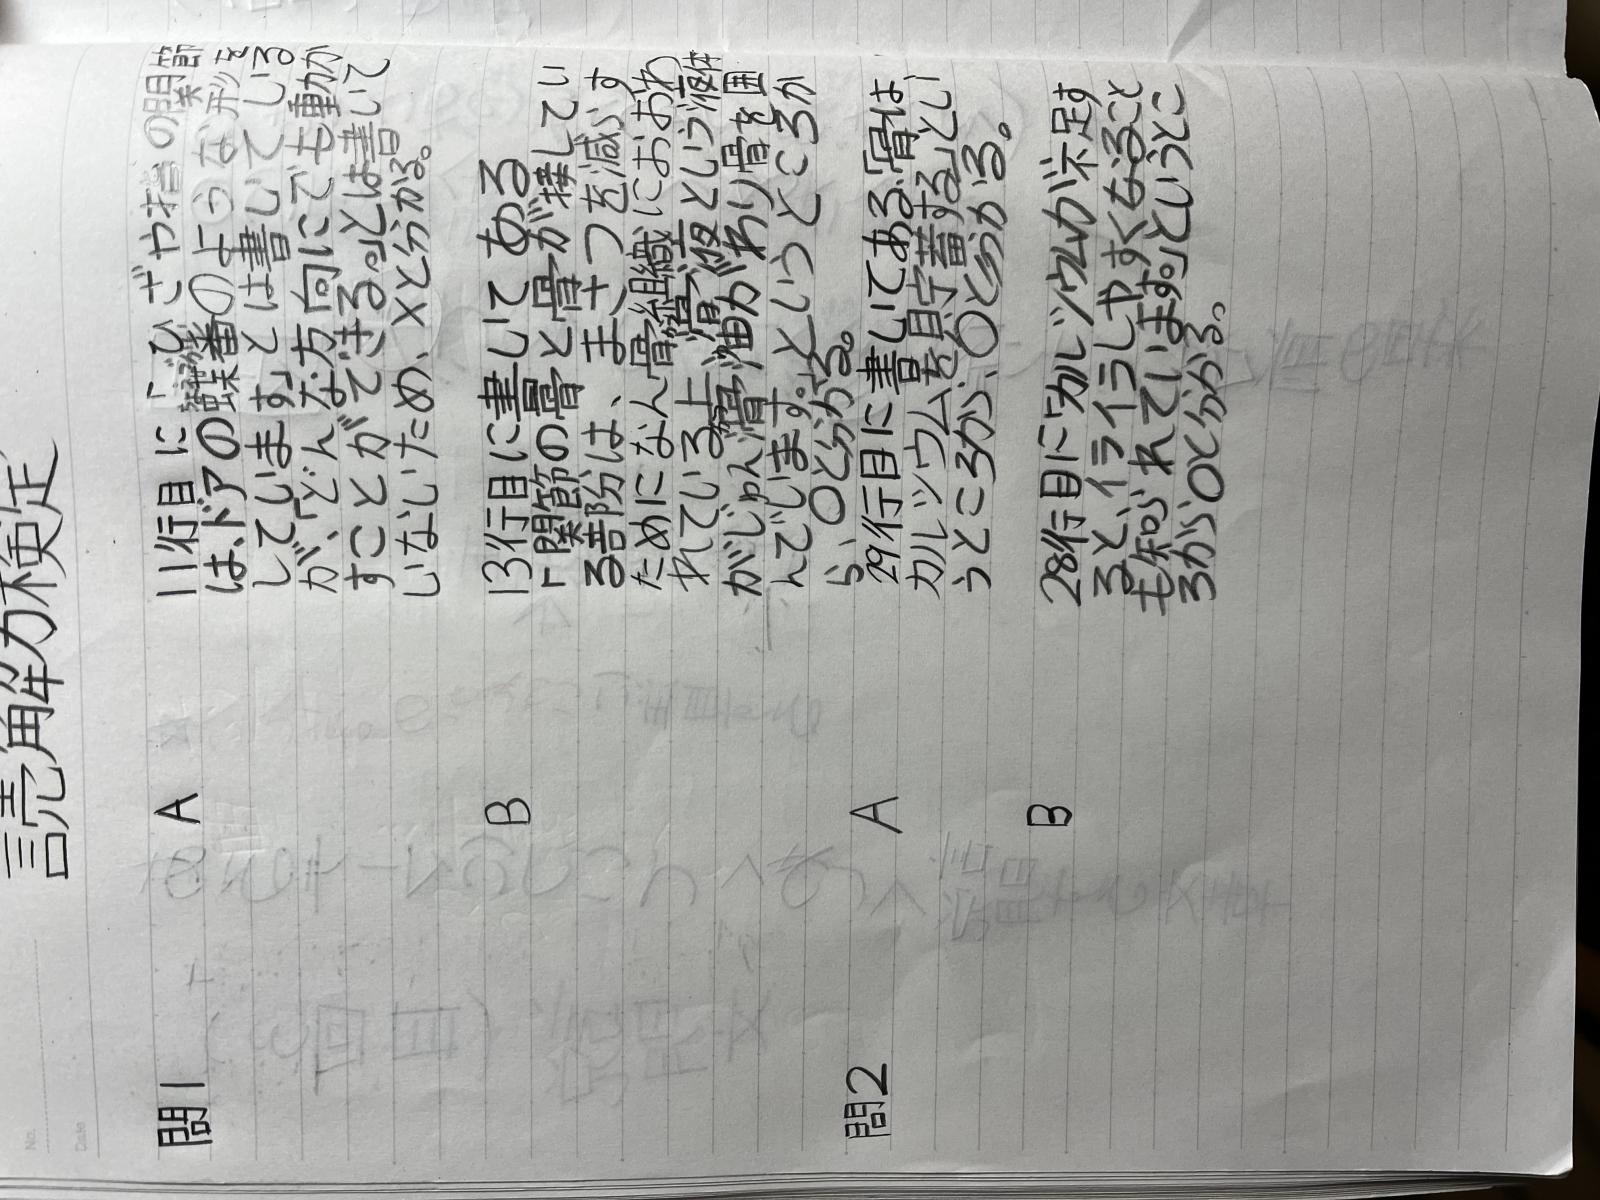 No.
Date
読解力検定
問1
A
11行目に「ひざや指の関節
は、ドアの蝶番のような形を
しています」とは書いている
が、「どんな方向にでも動か
すことができる。」とは書いて
いないため、×と分かる。
B
13行目に書いてある
「関節の骨と骨が接してい
る部分は、まさつを減らす
ためになん骨組織におおわ
れている上、滑液という液体
がじゅん滑油がわり骨を囲
んでいます。」というところか
ら、○と分かる。
問2
A
29行目に書いてある「骨は
カルシウムを貯蓄する」とい
うところから、○と分かる。
B
28行目に「カルシウムが不足す
ると、イライラしやすくなること
も知られています。」というとこ
ろから○と分かる。